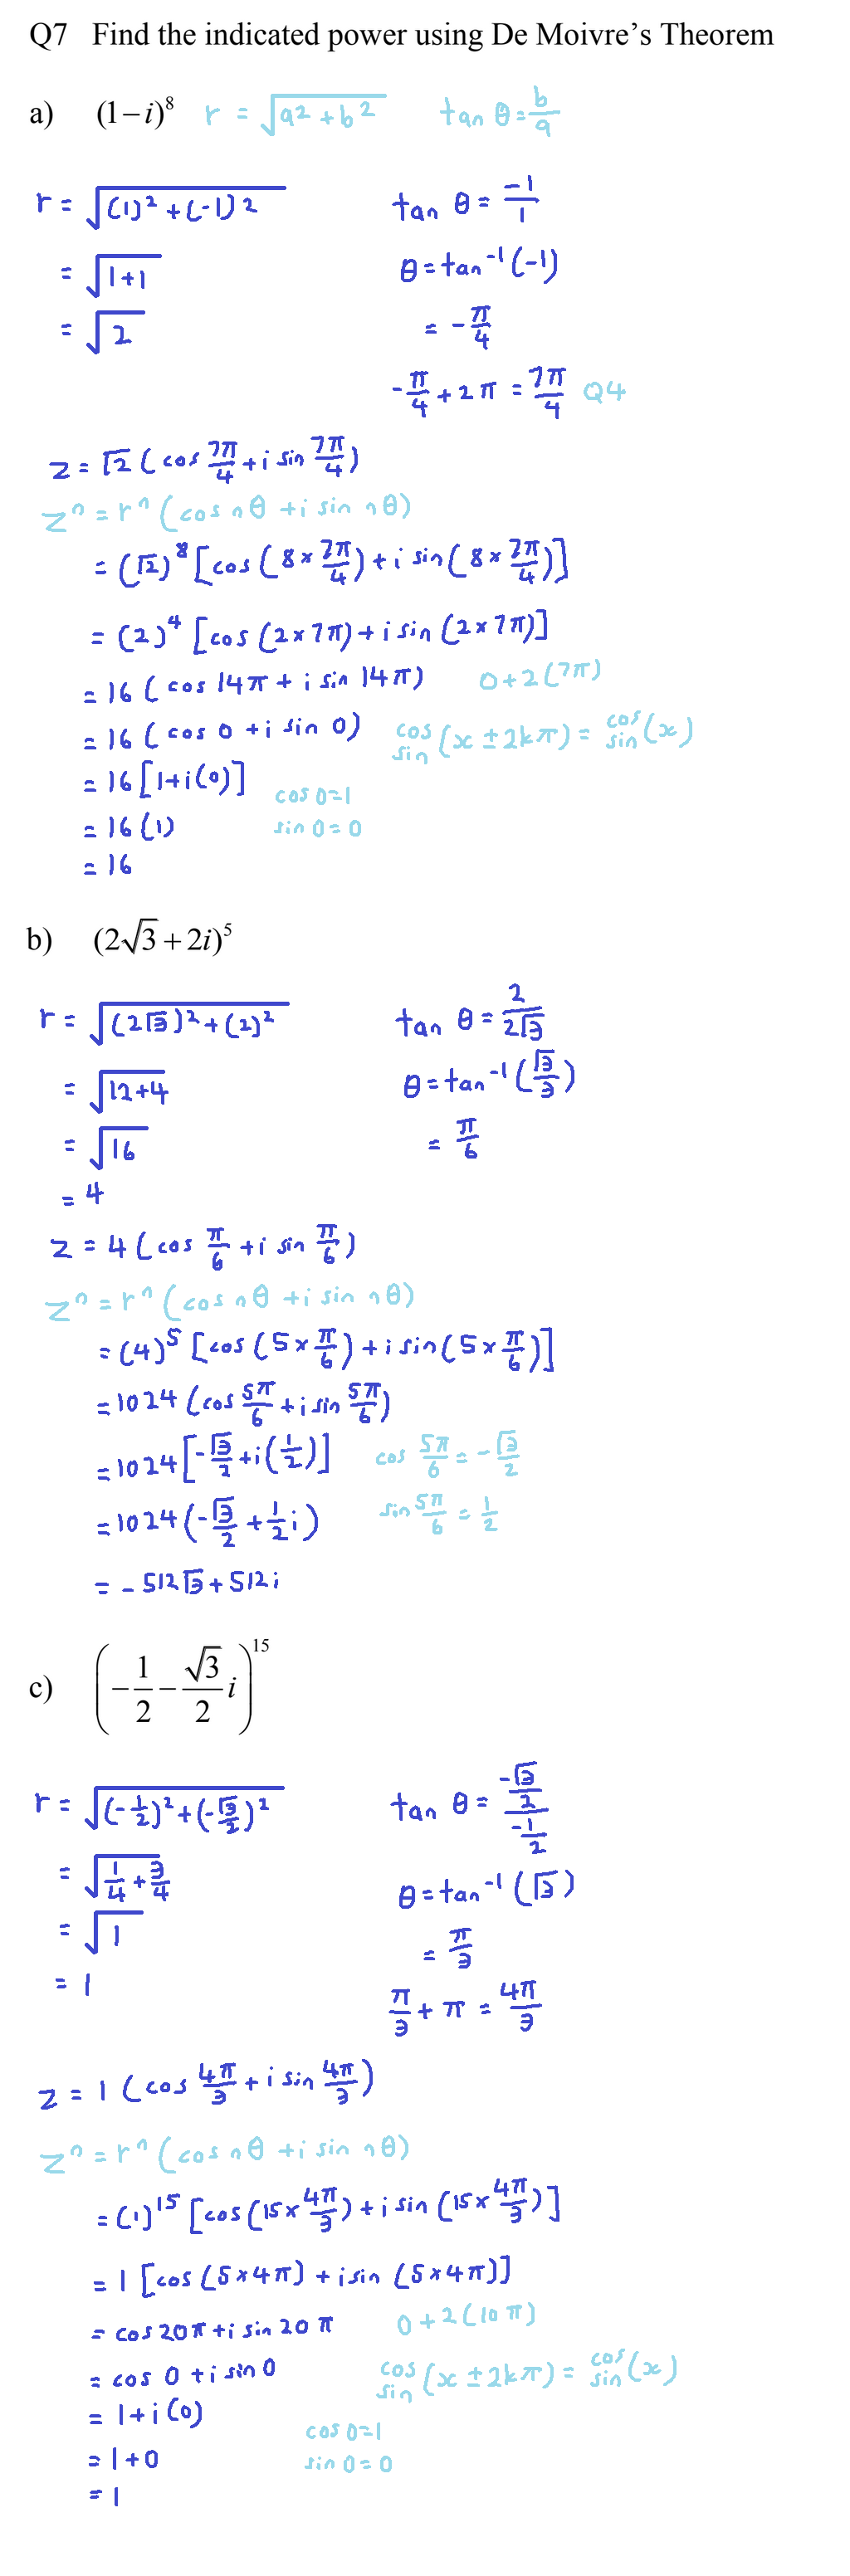 Q7 Find the indicated power using De Moivre's Theorem
a) (1−i)⁸ r = √(a² + b²) tan θ = b/a
r = √((1)² + (-1)²) tan θ = -1/1
= √(1+1) θ = tan⁻¹(-1)
= √2 = -π/4
-π/4 + 2π = 7π/4 Q4
z = √2 (cos 7π/4 + i sin 7π/4)
zⁿ = rⁿ (cos nθ + i sin nθ)
= (√2)⁸ [cos (8 × 7π/4) + i sin (8 × 7π/4)]
= (2)⁴ [cos (2 × 7π) + i sin (2 × 7π)]
= 16 (cos 14π + i sin 14π) 0 + 2(7π)
= 16 (cos 0 + i sin 0) cos/sin (x ± 2kπ) = cos/sin (x)
= 16 [1 + i(0)] cos 0 = 1
= 16 (1) sin 0 = 0
= 16
b) (2√3 + 2i)⁵
r = √((2√3)² + (2)²) tan θ = 2/2√3
= √(12+4) θ = tan⁻¹(√3/3)
= √16 = π/6
= 4
z = 4 (cos π/6 + i sin π/6)
zⁿ = rⁿ (cos nθ + i sin nθ)
= (4)⁵ [cos (5 × π/6) + i sin (5 × π/6)]
= 1024 (cos 5π/6 + i sin 5π/6)
= 1024 [-√3/2 + i(1/2)] cos 5π/6 = -√3/2
= 1024 (-√3/2 + 1/2 i) sin 5π/6 = 1/2
= -512√3 + 512i
c) (−1/2 − √3/2 i)¹⁵
r = √((-1/2)² + (-√3/2)²) tan θ = (-√3/2)/(-1/2)
= √(1/4 + 3/4) θ = tan⁻¹(√3)
= √1 = π/3
= 1 π/3 + π = 4π/3
z = 1 (cos 4π/3 + i sin 4π/3)
zⁿ = rⁿ (cos nθ + i sin nθ)
= (1)¹⁵ [cos (15 × 4π/3) + i sin (15 × 4π/3)]
= 1 [cos (5 × 4π) + i sin (5 × 4π)]
= cos 20π + i sin 20π 0 + 2(10π)
= cos 0 + i sin 0 cos/sin (x ± 2kπ) = cos/sin (x)
= 1 + i(0) cos 0 = 1
= 1 + 0 sin 0 = 0
= 1